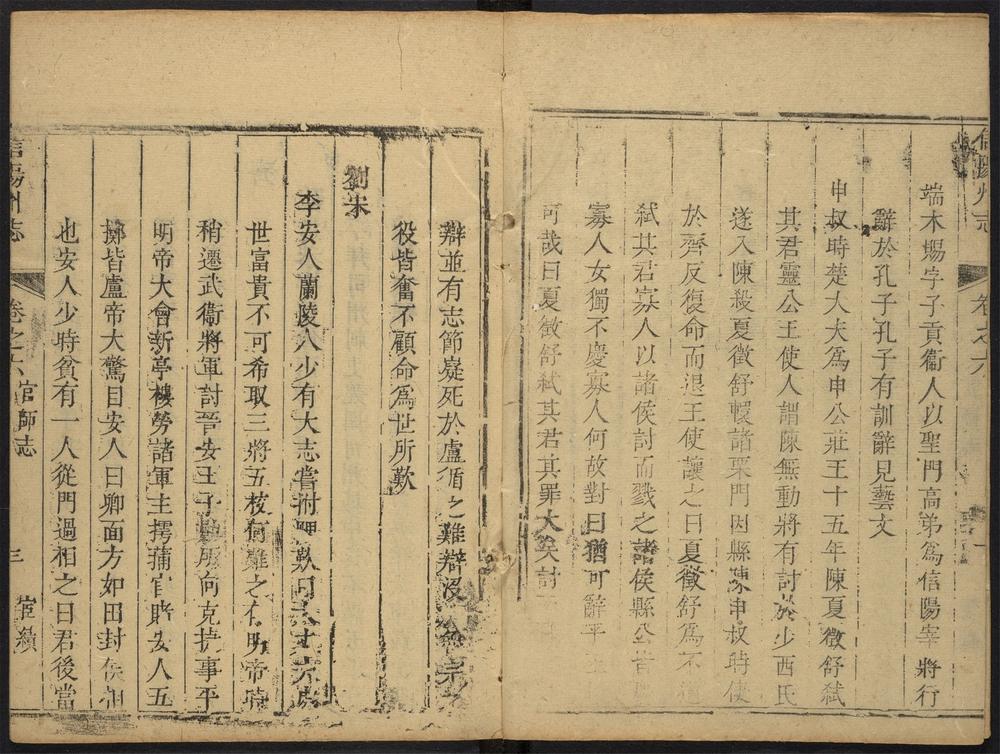 信陽州志
卷之六
端木賜字子貢衞人以聖門高弟爲信陽宰將行
辭於孔子孔子有訓辭見藝文
申叔時楚大夫爲申公莊王十五年陳夏徵舒弑
其君靈公王使人謂陳無動將有討於少西氏
遂入陳殺夏徵舒轘諸栗門因縣陳申叔時使
於齊反復命而退王使讓之曰夏徵舒爲不
弑其君寡人以諸侯討而戮之諸侯縣公皆
寡人女獨不慶寡人何故對曰猶可辭乎
可哉曰夏徵舒弑其君其罪大矣討
辯並有志節嶷死於盧循之難辯沒
役皆奮不顧命爲世所歎
劉宋
李安人蘭陵人少有大志嘗拊髀歎曰大丈夫處
世富貴不可希取三將五校何難之有明帝時
稍遷武衞將軍討晉安王子勛所向克捷事平
明帝大會新亭樓勞諸軍主摴蒲官賭安人五
擲皆盧帝大驚目安人曰卿面方如田封侯相
也安人少時貧有一人從門過相之曰君後當
信陽州志
卷之六 官師志
三
宦績